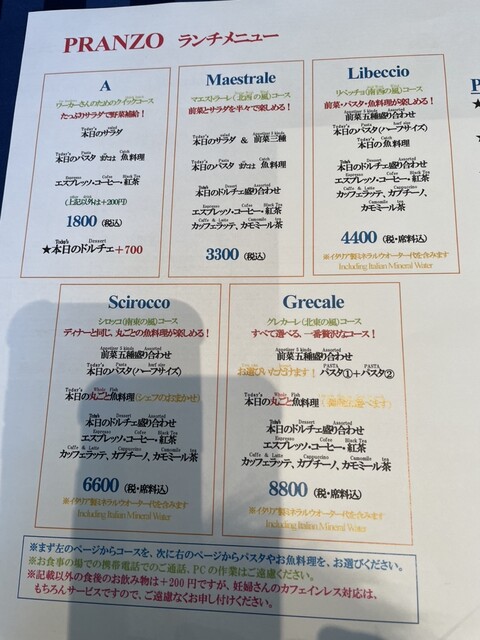 PRANZO ランチメニュー
A
ワーカーさんのためのクイックコース
たっぷりサラダで野菜補給！
Today's
本日のサラダ
Today's Pasta Catch
本日のパスタ または 魚料理
Espresso Cofee Black Tea
エスプレッソ・コーヒー・紅茶
(上記以外は+200円)
1800 (税込)
Today's Dessert
★本日のドルチェ+700
Maestrale
マエストラーレ(北西の風)コース
前菜とサラダを半々で楽しめる！
Today's Appetizer 3 kinds
本日のサラダ & 前菜三種
Today's Pasta Catch
本日のパスタ または 魚料理
Today's Dessert Assorted
本日のドルチェ盛り合わせ
Espresso Cofee Black Tea
エスプレッソ・コーヒー・紅茶
Caffe & Latte Camomile tea
カッフェラッテ、カモミール茶
3300 (税込)
Libeccio
リベッチョ(南西の風)コース
前菜・パスタ・魚料理が楽しめる！
Appetizer 5 kinds Assorted
前菜五種盛り合わせ
Today's Pasta harf size
本日のパスタ(ハーフサイズ)
Today's Catch
本日の魚料理
Today's Dessert Assorted
本日のドルチェ盛り合わせ
Espresso Cofee Black Tea
エスプレッソ・コーヒー・紅茶
Caffe & Latte Cappuccino
カッフェラッテ、カプチーノ、
Camomile tea
カモミール茶
4400 (税・席料込)
※イタリア製ミネラルウオーター代を含みます
Including Italian Mineral Water
Scirocco
シロッコ(南東の風)コース
ディナーと同じ、丸ごとの魚料理が楽しめる！
Appetizer 5 kinds Assorted
前菜五種盛り合わせ
Today's Pasta harf size
本日のパスタ(ハーフサイズ)
Today's Whole Fish
本日の丸ごと魚料理(シェフのおまかせ)
Today's Dessert Assorted
本日のドルチェ盛り合わせ
Espresso Cofee Black Tea
エスプレッソ・コーヒー・紅茶
Caffe & Latte Cappuccino Camomile tea
カッフェラッテ、カプチーノ、カモミール茶
6600 (税・席料込)
※イタリア製ミネラルウオーター代を含みます
Including Italian Mineral Water
Grecale
グレカーレ(北東の風)コース
すべて選べる、一番贅沢なコース！
Appetizer 5 kinds Assorted
前菜五種盛り合わせ
PASTA PASTA
お選びいただけます！ パスタ①+パスタ②
Today's Whole Fish
本日の丸ごと魚料理
Today's Dessert Assorted
本日のドルチェ盛り合わせ
Espresso Cofee Black Tea
エスプレッソ・コーヒー・紅茶
Caffe & Latte Cappuccino Camomile tea
カッフェラッテ、カプチーノ、カモミール茶
8800 (税・席料込)
※イタリア製ミネラルウオーター代を含みます
Including Italian Mineral Water
※まず左のページからコースを、次に右のページからパスタやお魚料理を、お選びください。
※お食事の場での携帯電話でのご通話、PCの作業はご遠慮ください。
※記載以外の食後のお飲み物は+200円ですが、妊婦さんのカフェインレス対応は、
もちろんサービスですので、ご遠慮なくお申し付けください。